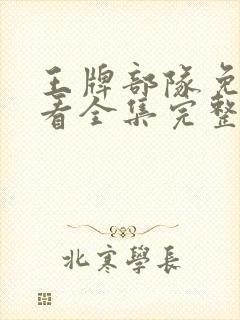 王牌部队免
看全集完整
北寒學長